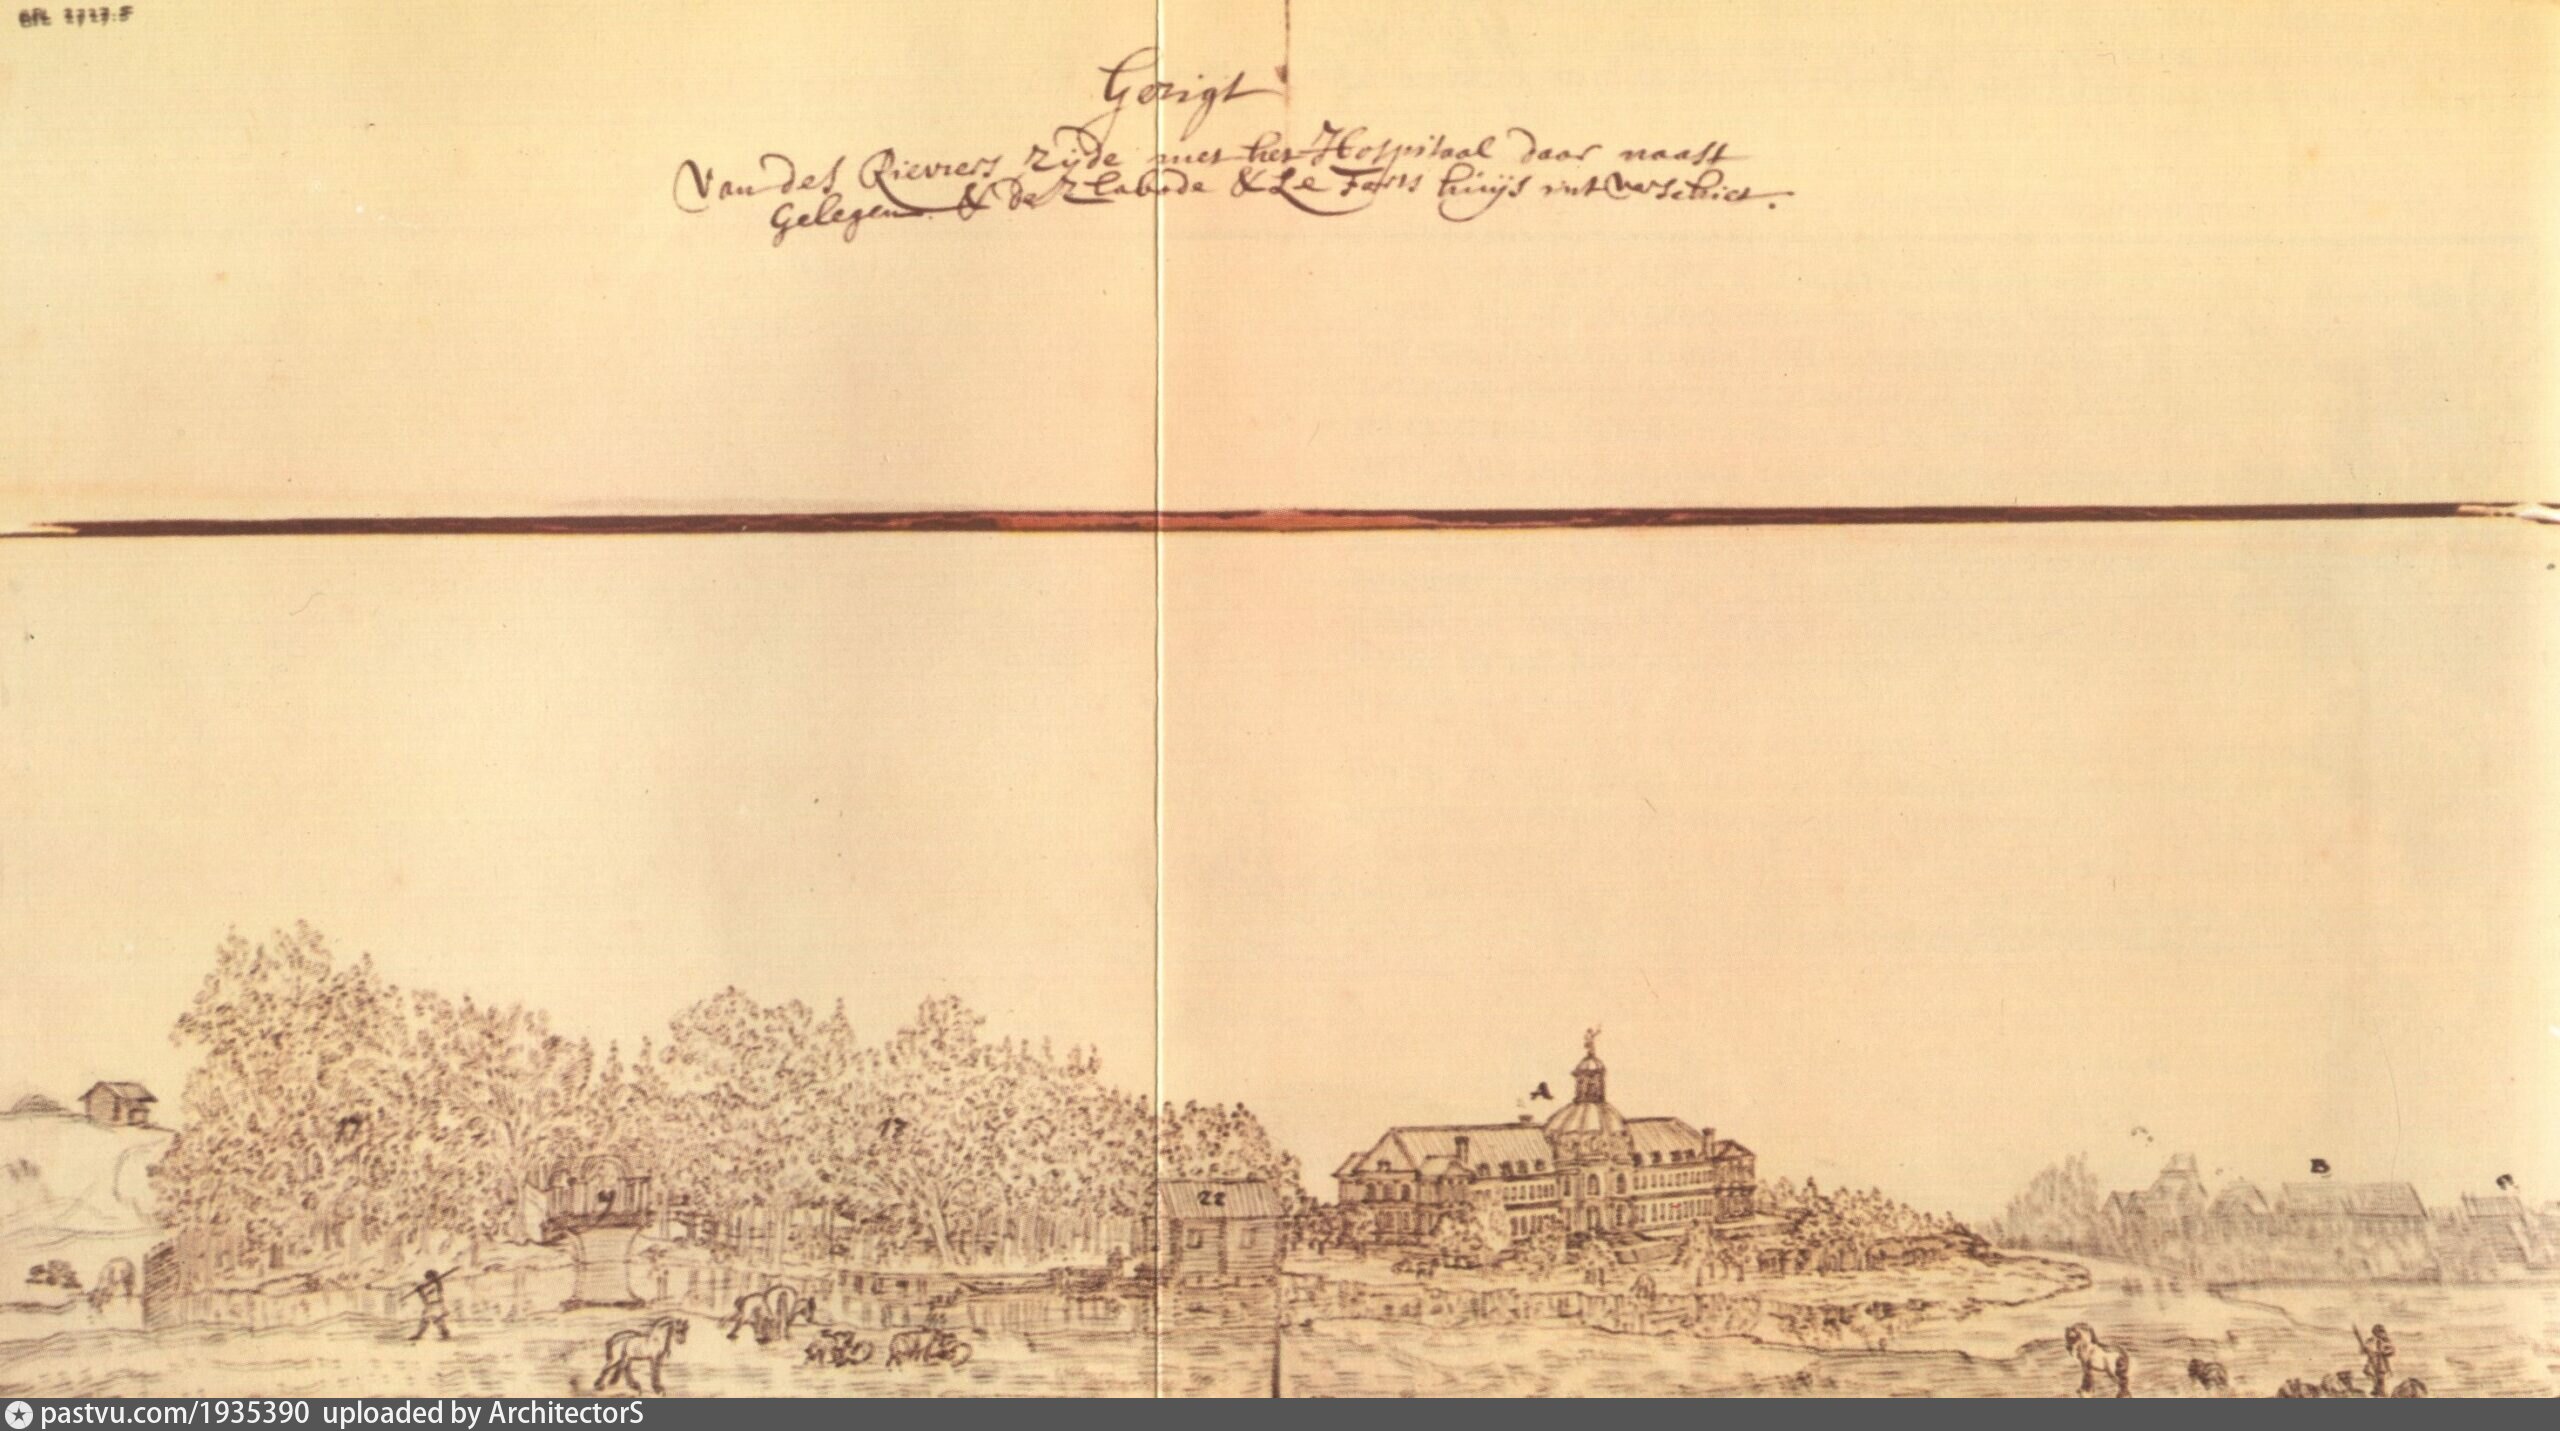 Gezigt
Van des Rieviers Zijde met het Hospitaal daar naast
Gelegen & de Slabode & Le Forts huijs int verschiet.
A
B
17
17
y
22
pastvu.com/1935390 uploaded by ArchitectorS